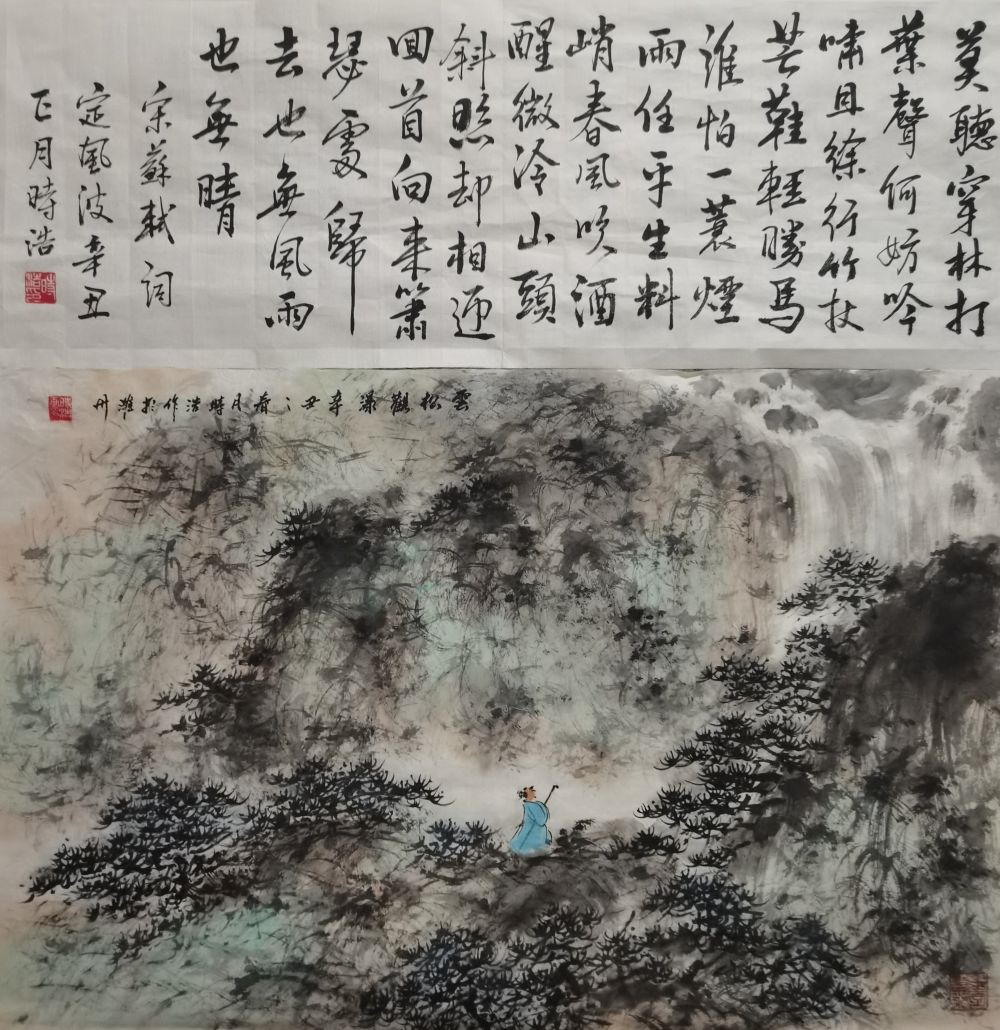 莫聽穿林打
葉聲何妨吟
嘯且徐行竹杖
芒鞋輕勝馬
誰怕一蓑煙
雨任平生料
峭春風吹酒
醒微冷山頭
斜照却相迎
回首向来簫
瑟處歸
去也無風雨
也無晴
宋蘇軾詞
定風波辛丑
正月時浩
雲松觀瀑辛丑之春月時浩作於濰州